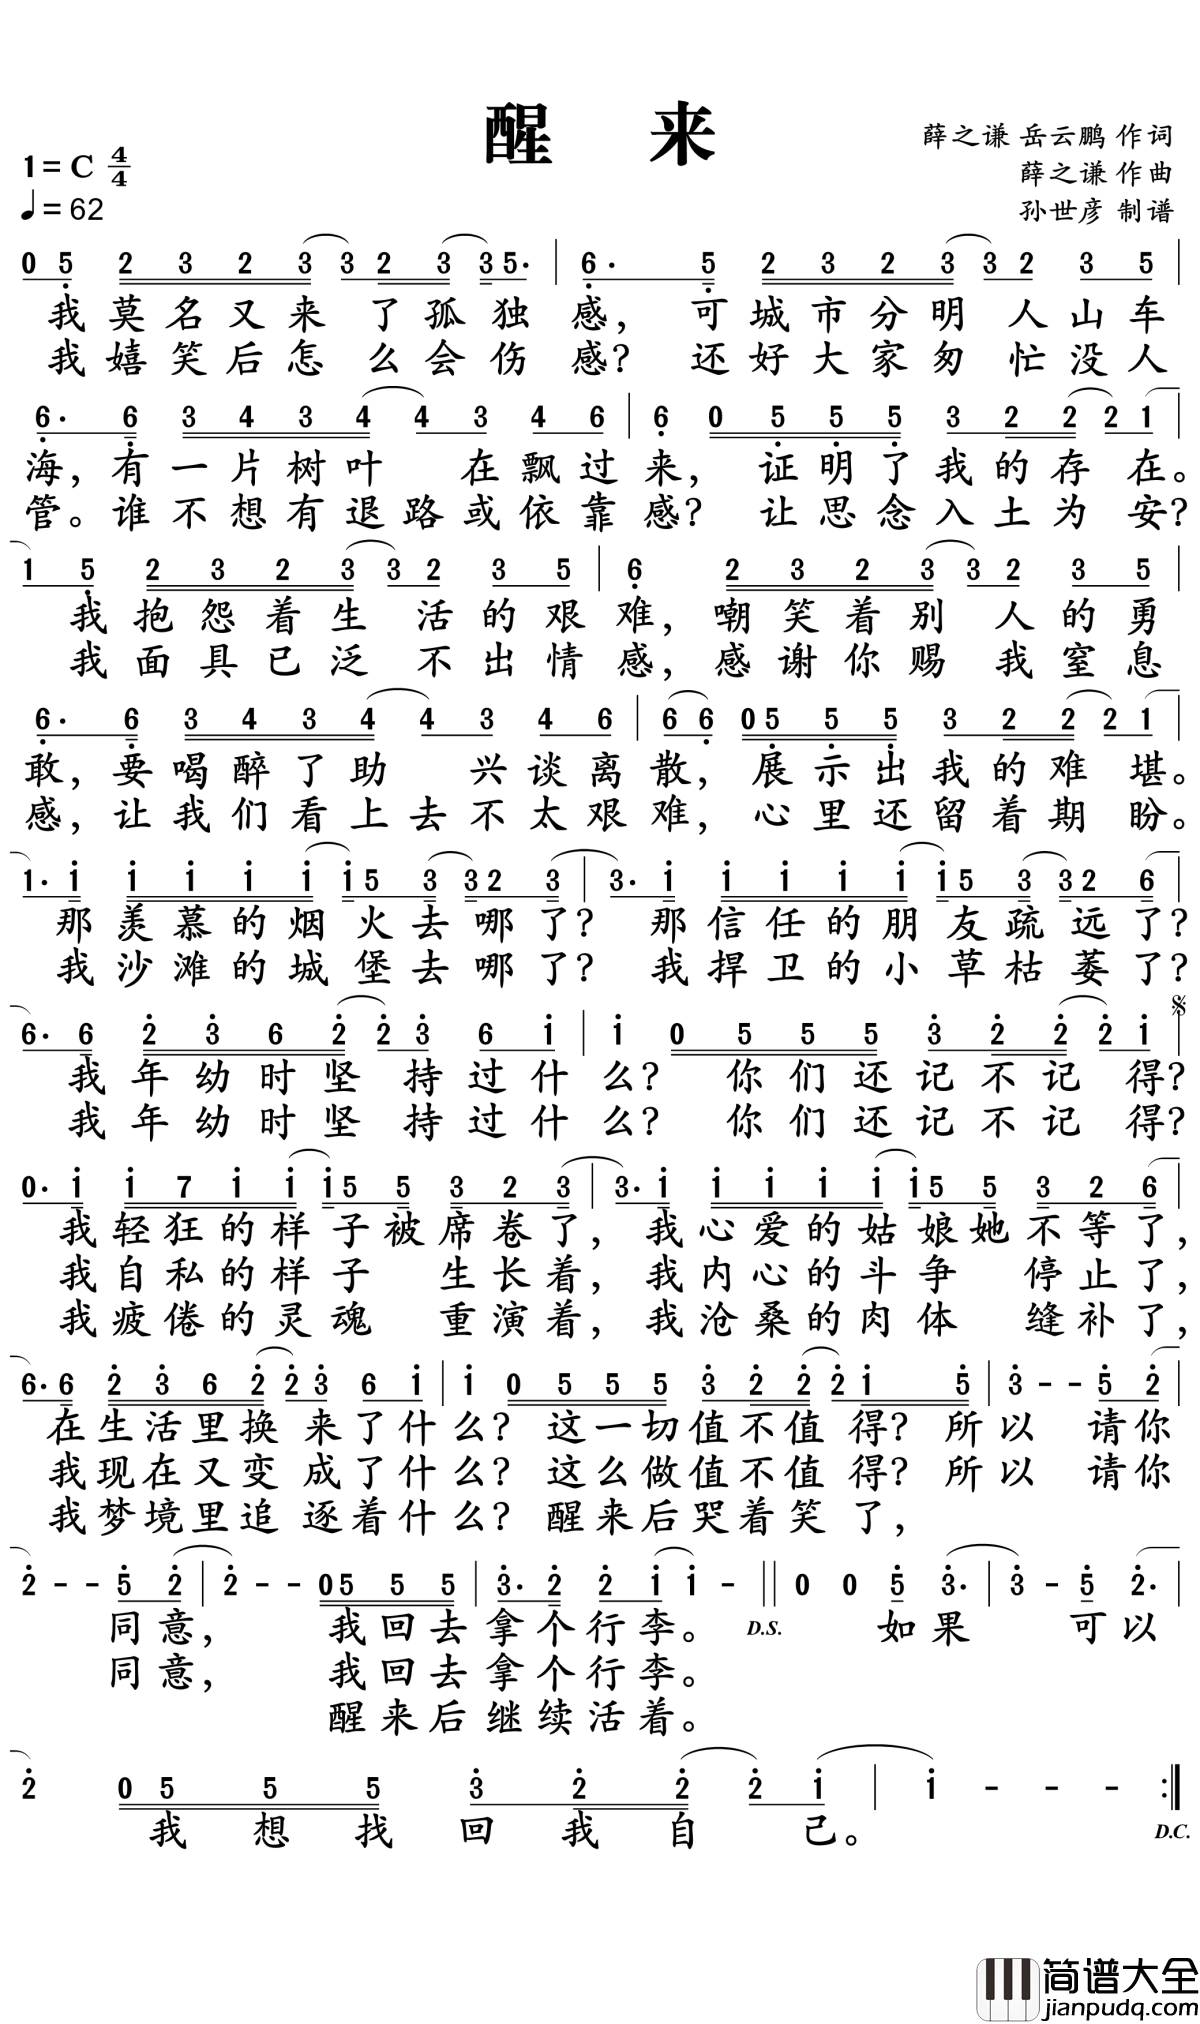 醒 来
薛之谦 岳云鹏 作词
1=C 4/4
薛之谦 作曲
♩=62
孙世彦 制谱
0 5 2 3 2 3 3 2 3 3 5· | 6· 5 2 3 2 3 3 2 3 5 |
我莫名又来 了孤独 感, 可城市分明 人山车
我嬉笑后怎 么会伤 感? 还好大家匆 忙没人
6· 6 3 4 3 4 4 3 4 6 | 6 0 5 5 5 3 2 2 2 1 |
海,有一片树叶 在飘过来, 证明了我的存 在。
管。谁不想有退路或依靠感? 让思念入土为 安?
1 5 2 3 2 3 3 2 3 5 | 6 2 3 2 3 3 2 3 5 |
我抱怨着生 活的艰 难, 嘲笑着别 人的勇
我面具已泛 不出情 感, 感谢你赐 我窒息
6· 6 3 4 3 4 4 3 4 6 | 6 6 0 5 5 5 3 2 2 2 1 |
敢,要喝醉了助 兴谈离散, 展示出我的难 堪。
感,让我们看上去不太艰难, 心里还留着期 盼。
1· i i i i i i 5 3 3 2 3 | 3· i i i i i i 5 3 3 2 6 |
那羡慕的烟 火去哪了? 那信任的朋 友疏远了?
我沙滩的城 堡去哪了? 我捍卫的小 草枯萎了?
6· 6 2 3 6 2 2 3 6 i | i 0 5 5 5 3 2 2 2 i |
我年幼时坚 持过什 么? 你们还记不记 得?
我年幼时坚 持过什 么? 你们还记不记 得?
0· i i 7 i i i 5 5 3 2 3 | 3· i i i i i i 5 5 3 2 6 |
我轻狂的样 子被席卷了, 我心爱的姑 娘她不等了,
我自私的样 子 生长着, 我内心的斗 争 停止了,
我疲倦的灵 魂 重演着, 我沧桑的肉 体 缝补了,
6· 6 2 3 6 2 2 3 6 i | i 0 5 5 5 3 2 2 2 i 5 | 3 - - 5 2
在生活里换 来了什么? 这一切值不值 得? 所以 请你
我现在又变 成了什么? 这么做值不值 得? 所以 请你
我梦境里追 逐着什么? 醒来后哭着笑 了,
2 - - 5 2 | 2 - - 0 5 5 5 | 3· 2 2 i i - || 0 0 5 3· | 3 - 5 2· |
同意, 我回去拿个行李。 D.S. 如果 可以
同意, 我回去拿个行李。
醒来后继续活着。
2 0 5 5 5 3 2 2 2 i | i - - - :|
我想找回我自 己。 D.C.
简谱大全
jianpudq.com